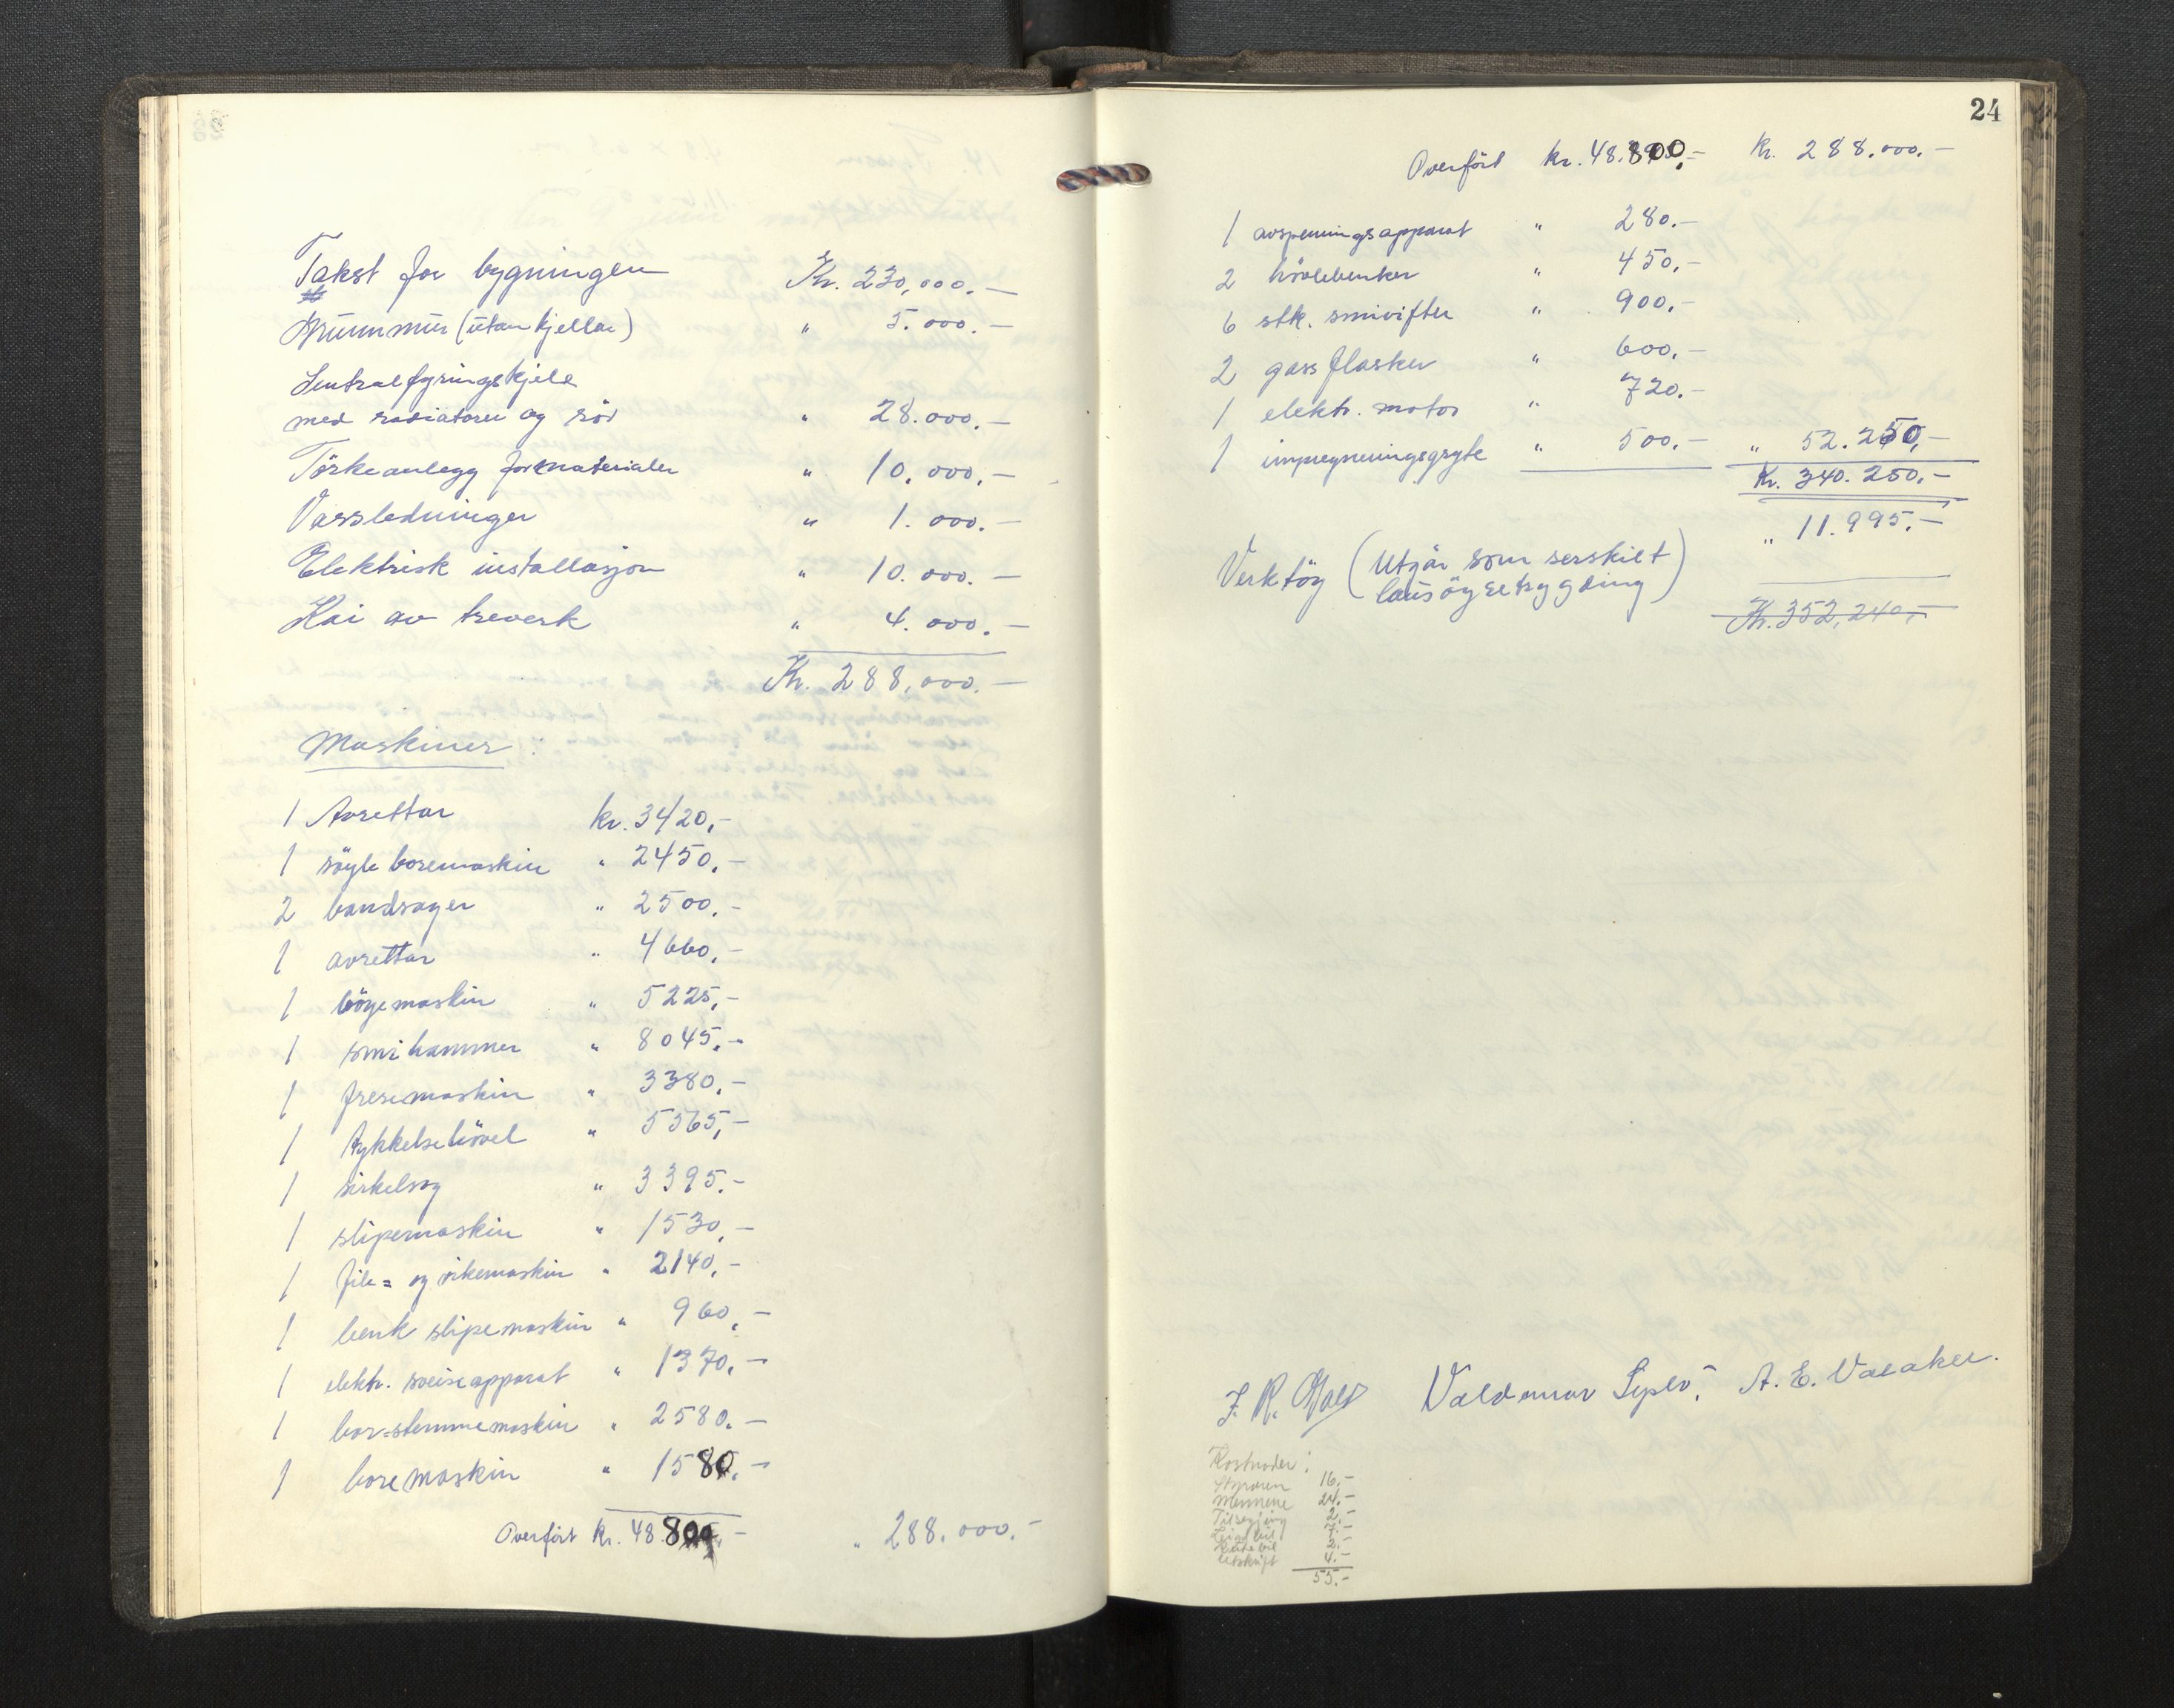 Takst for bygningen Kr. 230,000.—
Grunnmur (utan kjellar) " 5.000.—
Sentralfyringskjele
med radiatorer og rör " 28.000.—
Törkeanlegg for materialer " 10.000.—
Vassledninger " 1.000.—
Elektrisk installasjon " 10.000.—
Kai av treverk " 4.000.—
Kr. 288,000.—
Maskiner:
1 Avrettar kr. 3420,-
1 söyle boremaskin " 2450,-
2 bandsager " 2500,-
1 avrettar " 4660,-
1 böyemaskin " 5225,-
1 smihammer " 8045,-
1 fresemaskin " 3380,-
1 tykkelsehövel " 5565,-
1 sirkelsag " 3395.-
1 slipemaskin " 1530,-
1 file= og vikemaskin " 2140,-
1 benk slipemaskin " 960,-
1 elektr. sveiseapparat " 1370,-
1 bor=stemmemaskin " 2580.-
1 boremaskin " 1580.-
Overfört kr. 48.800,- " 288.000.-
24
Overfört kr. 48.800,- Kr. 288.000.-
1 avsperringsapparat " 280.-
2 hövlebenker " 450,-
6 stk. smivifter " 900,-
2 gassflasker " 600,-
1 elektr. motor " 720.-
1 impregneringsgryte " 500,- " 52.250,-
Kr. 340.250,-
" 11.995,-
Verktöy (Utgår som serskilt
lausöyretrygding)
Kr. 352,240,-
Valdemar A. E. Valaker.
Kostnader:
Styraren 16,-
Mennene 24,-
Tilsegjing 2,-
utskrift 4.-
55.-